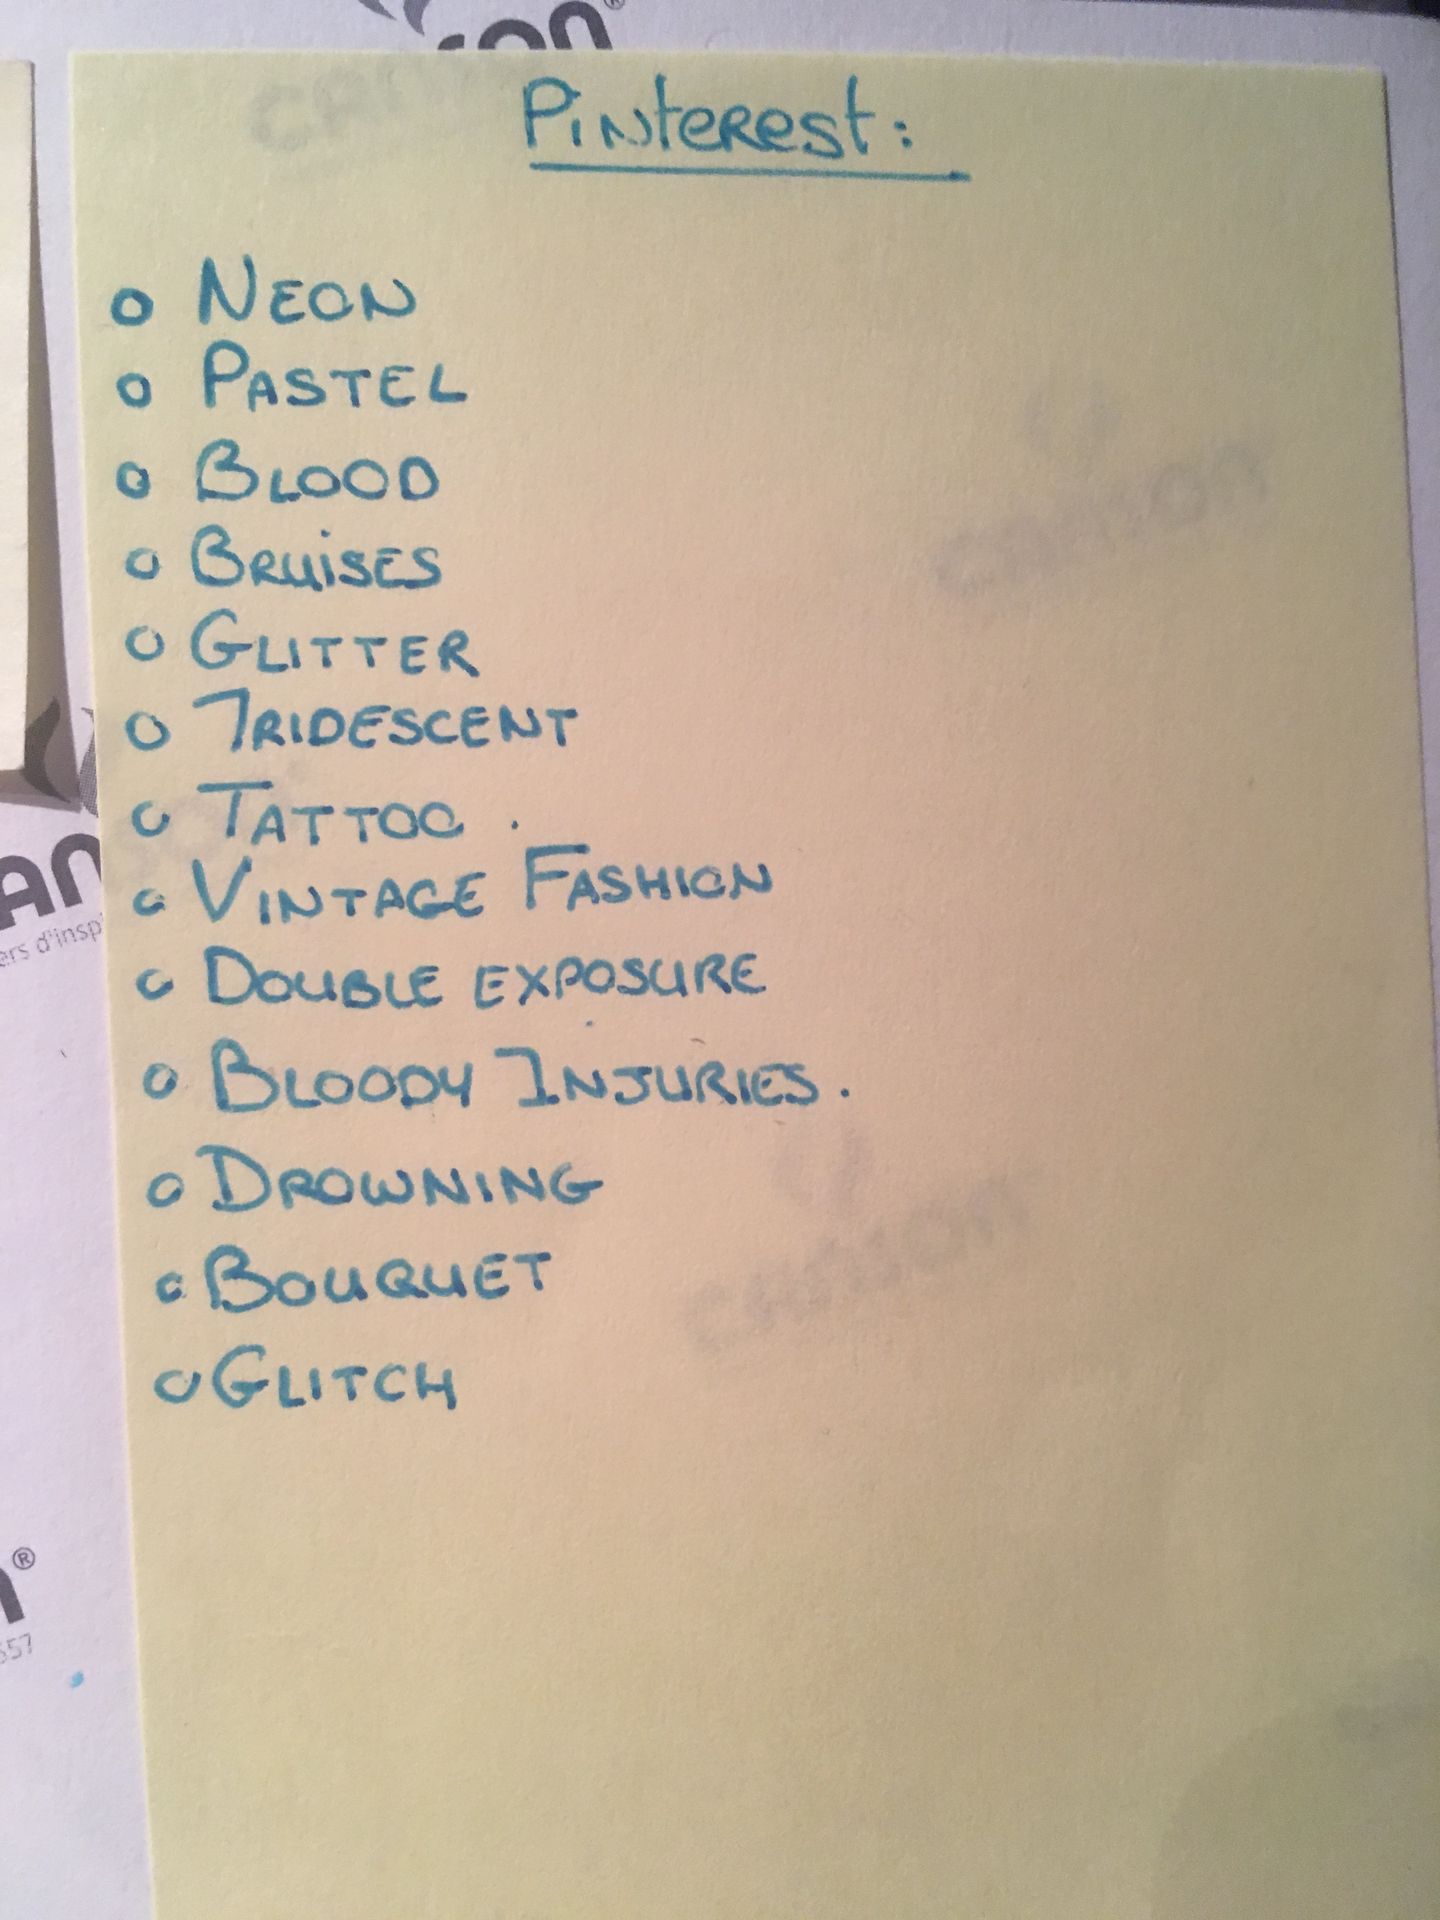 Pinterest:
o NEON
o PASTEL
o BLOOD
o BRUISES
o GLITTER
o IRIDESCENT
o TATTOO .
o VINTAGE FASHION
o DOUBLE EXPOSURE
o BLOODY INJURIES.
o DROWNING
o BOUQUET
o GLITCH
canson
canson
canson